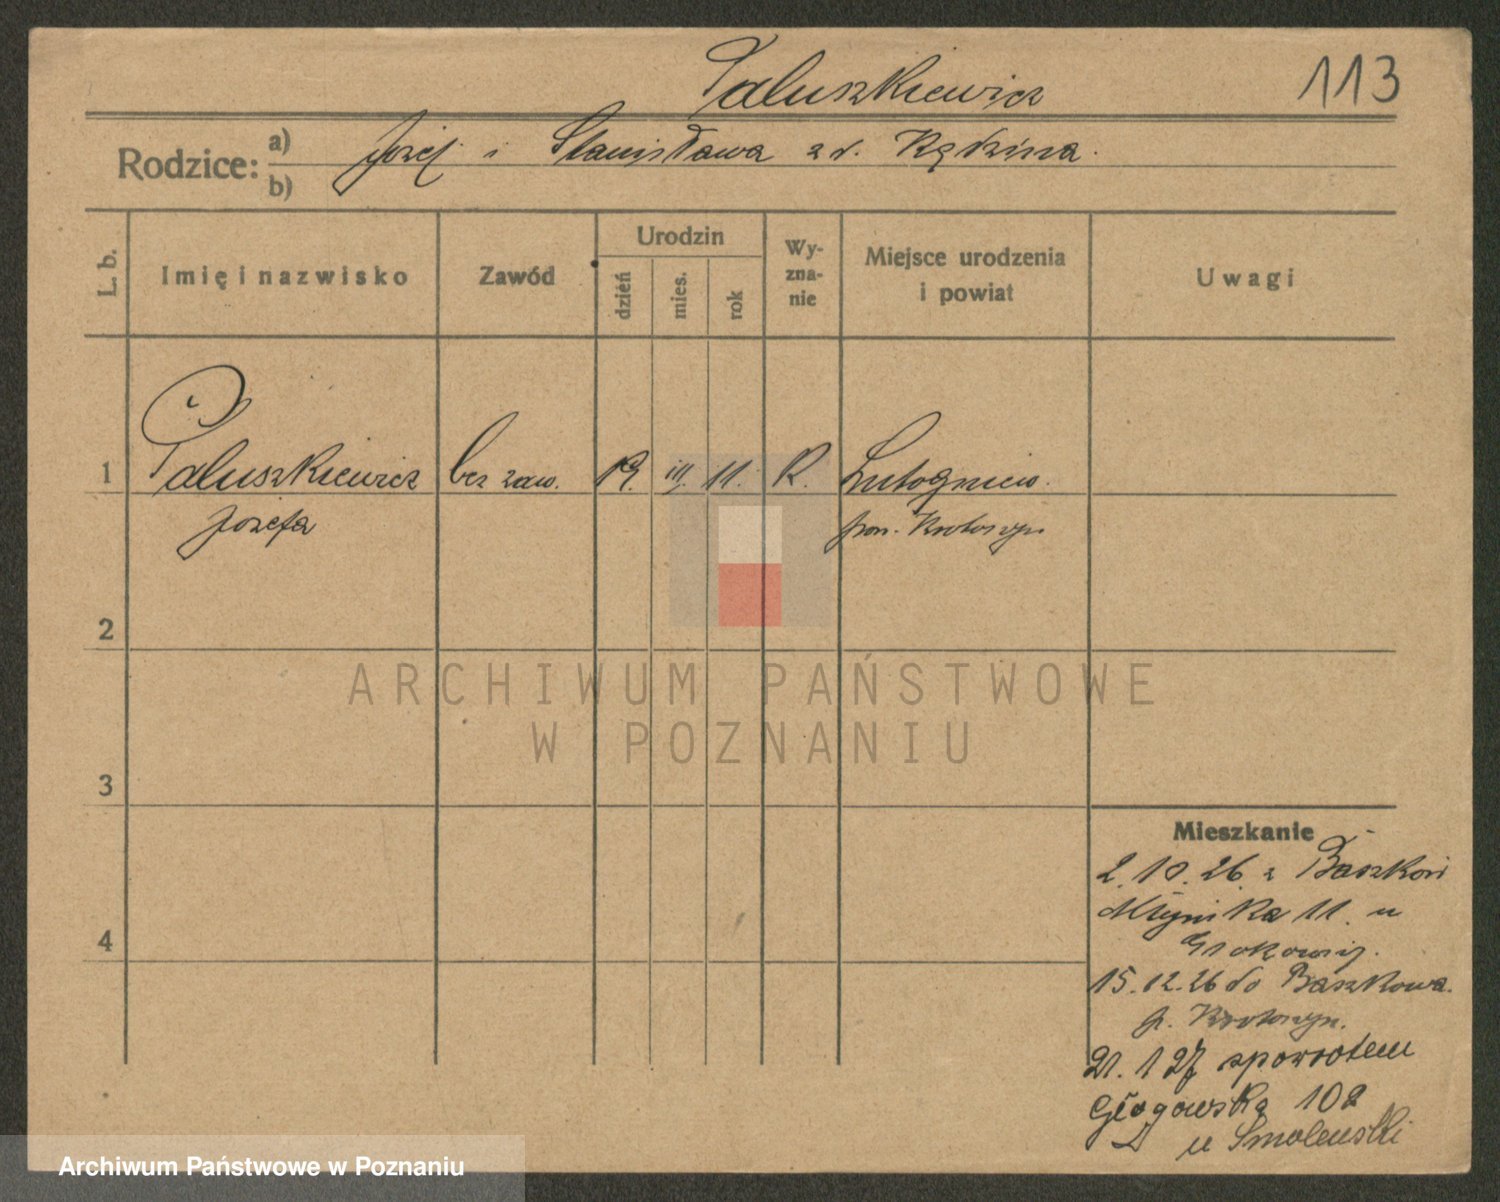 Paluszkiewicz
113
Rodzice:
a) Józef i Stanisława z d.
b)
L. b.
Imię i nazwisko
Zawód
Urodzin
dzień
mies.
rok
Wy-
zna-
nie
Miejsce urodzenia
i powiat
Uwagi
1
Paluszkiewicz
Józefa
bez zaw.
19.
III.
11.
R.
Lutogniew.
pow. Krotoszyn
2
3
4
Mieszkanie
2.10.26. z Baszków
11. u
15.12.26 do Baszkowa.
p. Krotoszyn.
21. 1 27 spowrotem
Głogowska 102
u Smolenski
ARCHIWUM PAŃSTWOWE
W POZNANIU
Archiwum Państwowe w Poznaniu